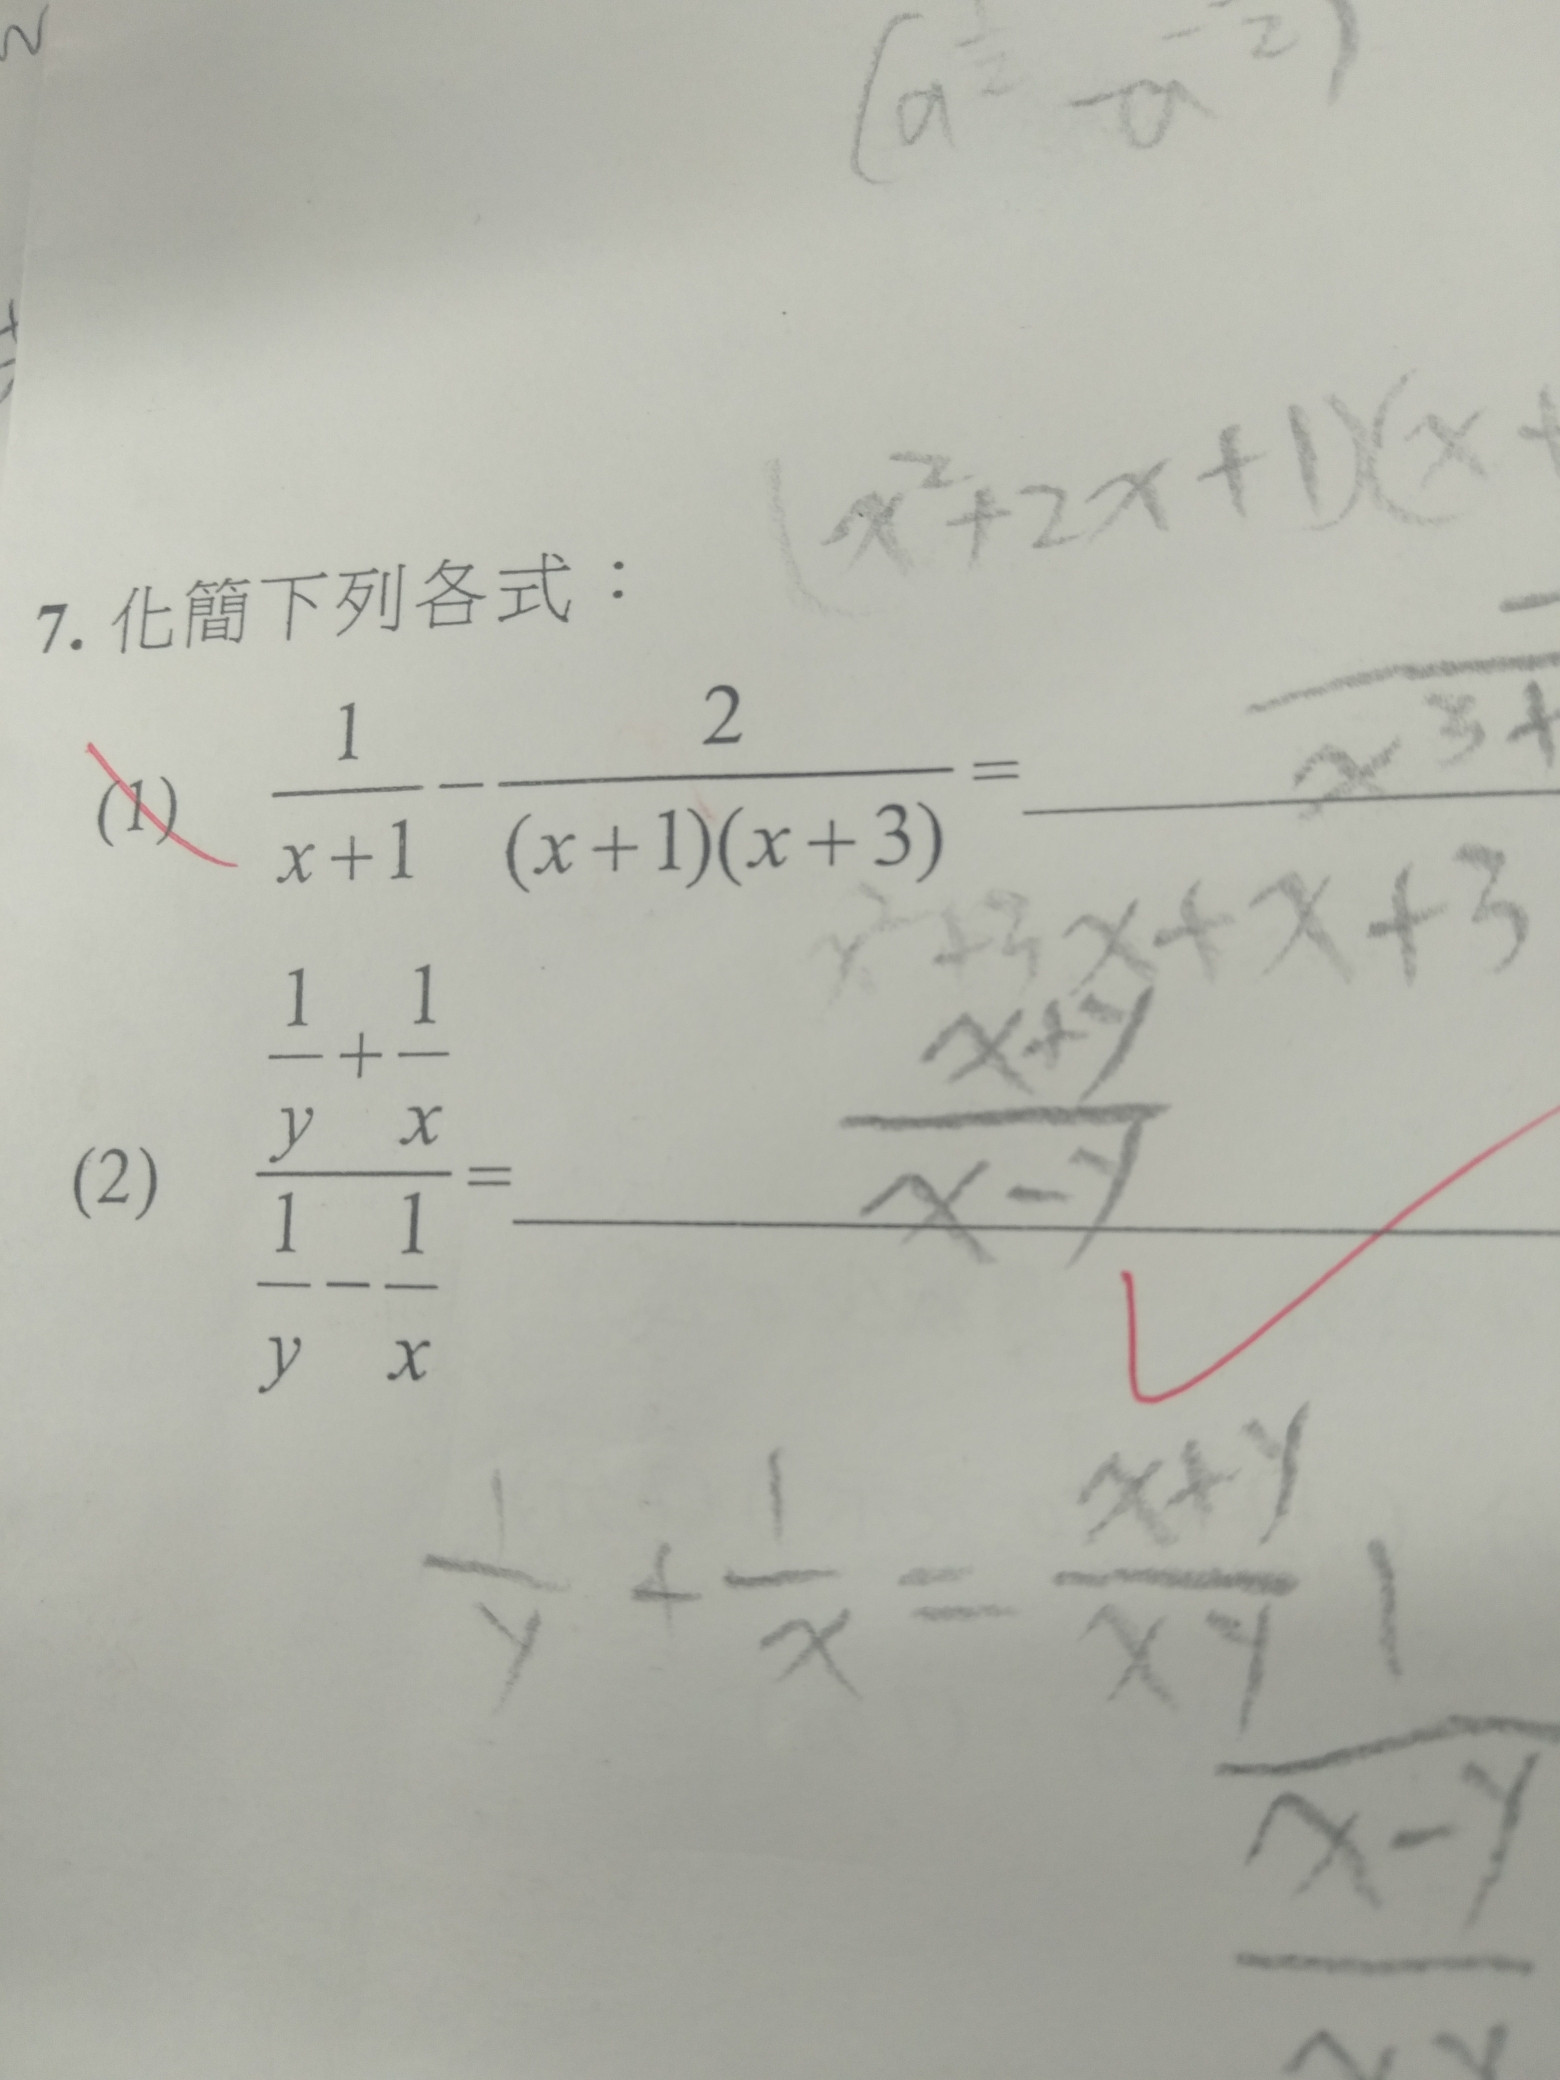 (a^{\frac{1}{2}} - a^{-2})
(x²+2x+1)(x+
7. 化簡下列各式：
(1) \frac{1}{x+1} - \frac{2}{(x+1)(x+3)} =
x³+
x²+3x+x+3
(2) \frac{\frac{1}{y}+\frac{1}{x}}{\frac{1}{y}-\frac{1}{x}} = \frac{x+y}{x-y}
\frac{1}{y} + \frac{1}{x} = \frac{x+y}{xy}
x-y
xy